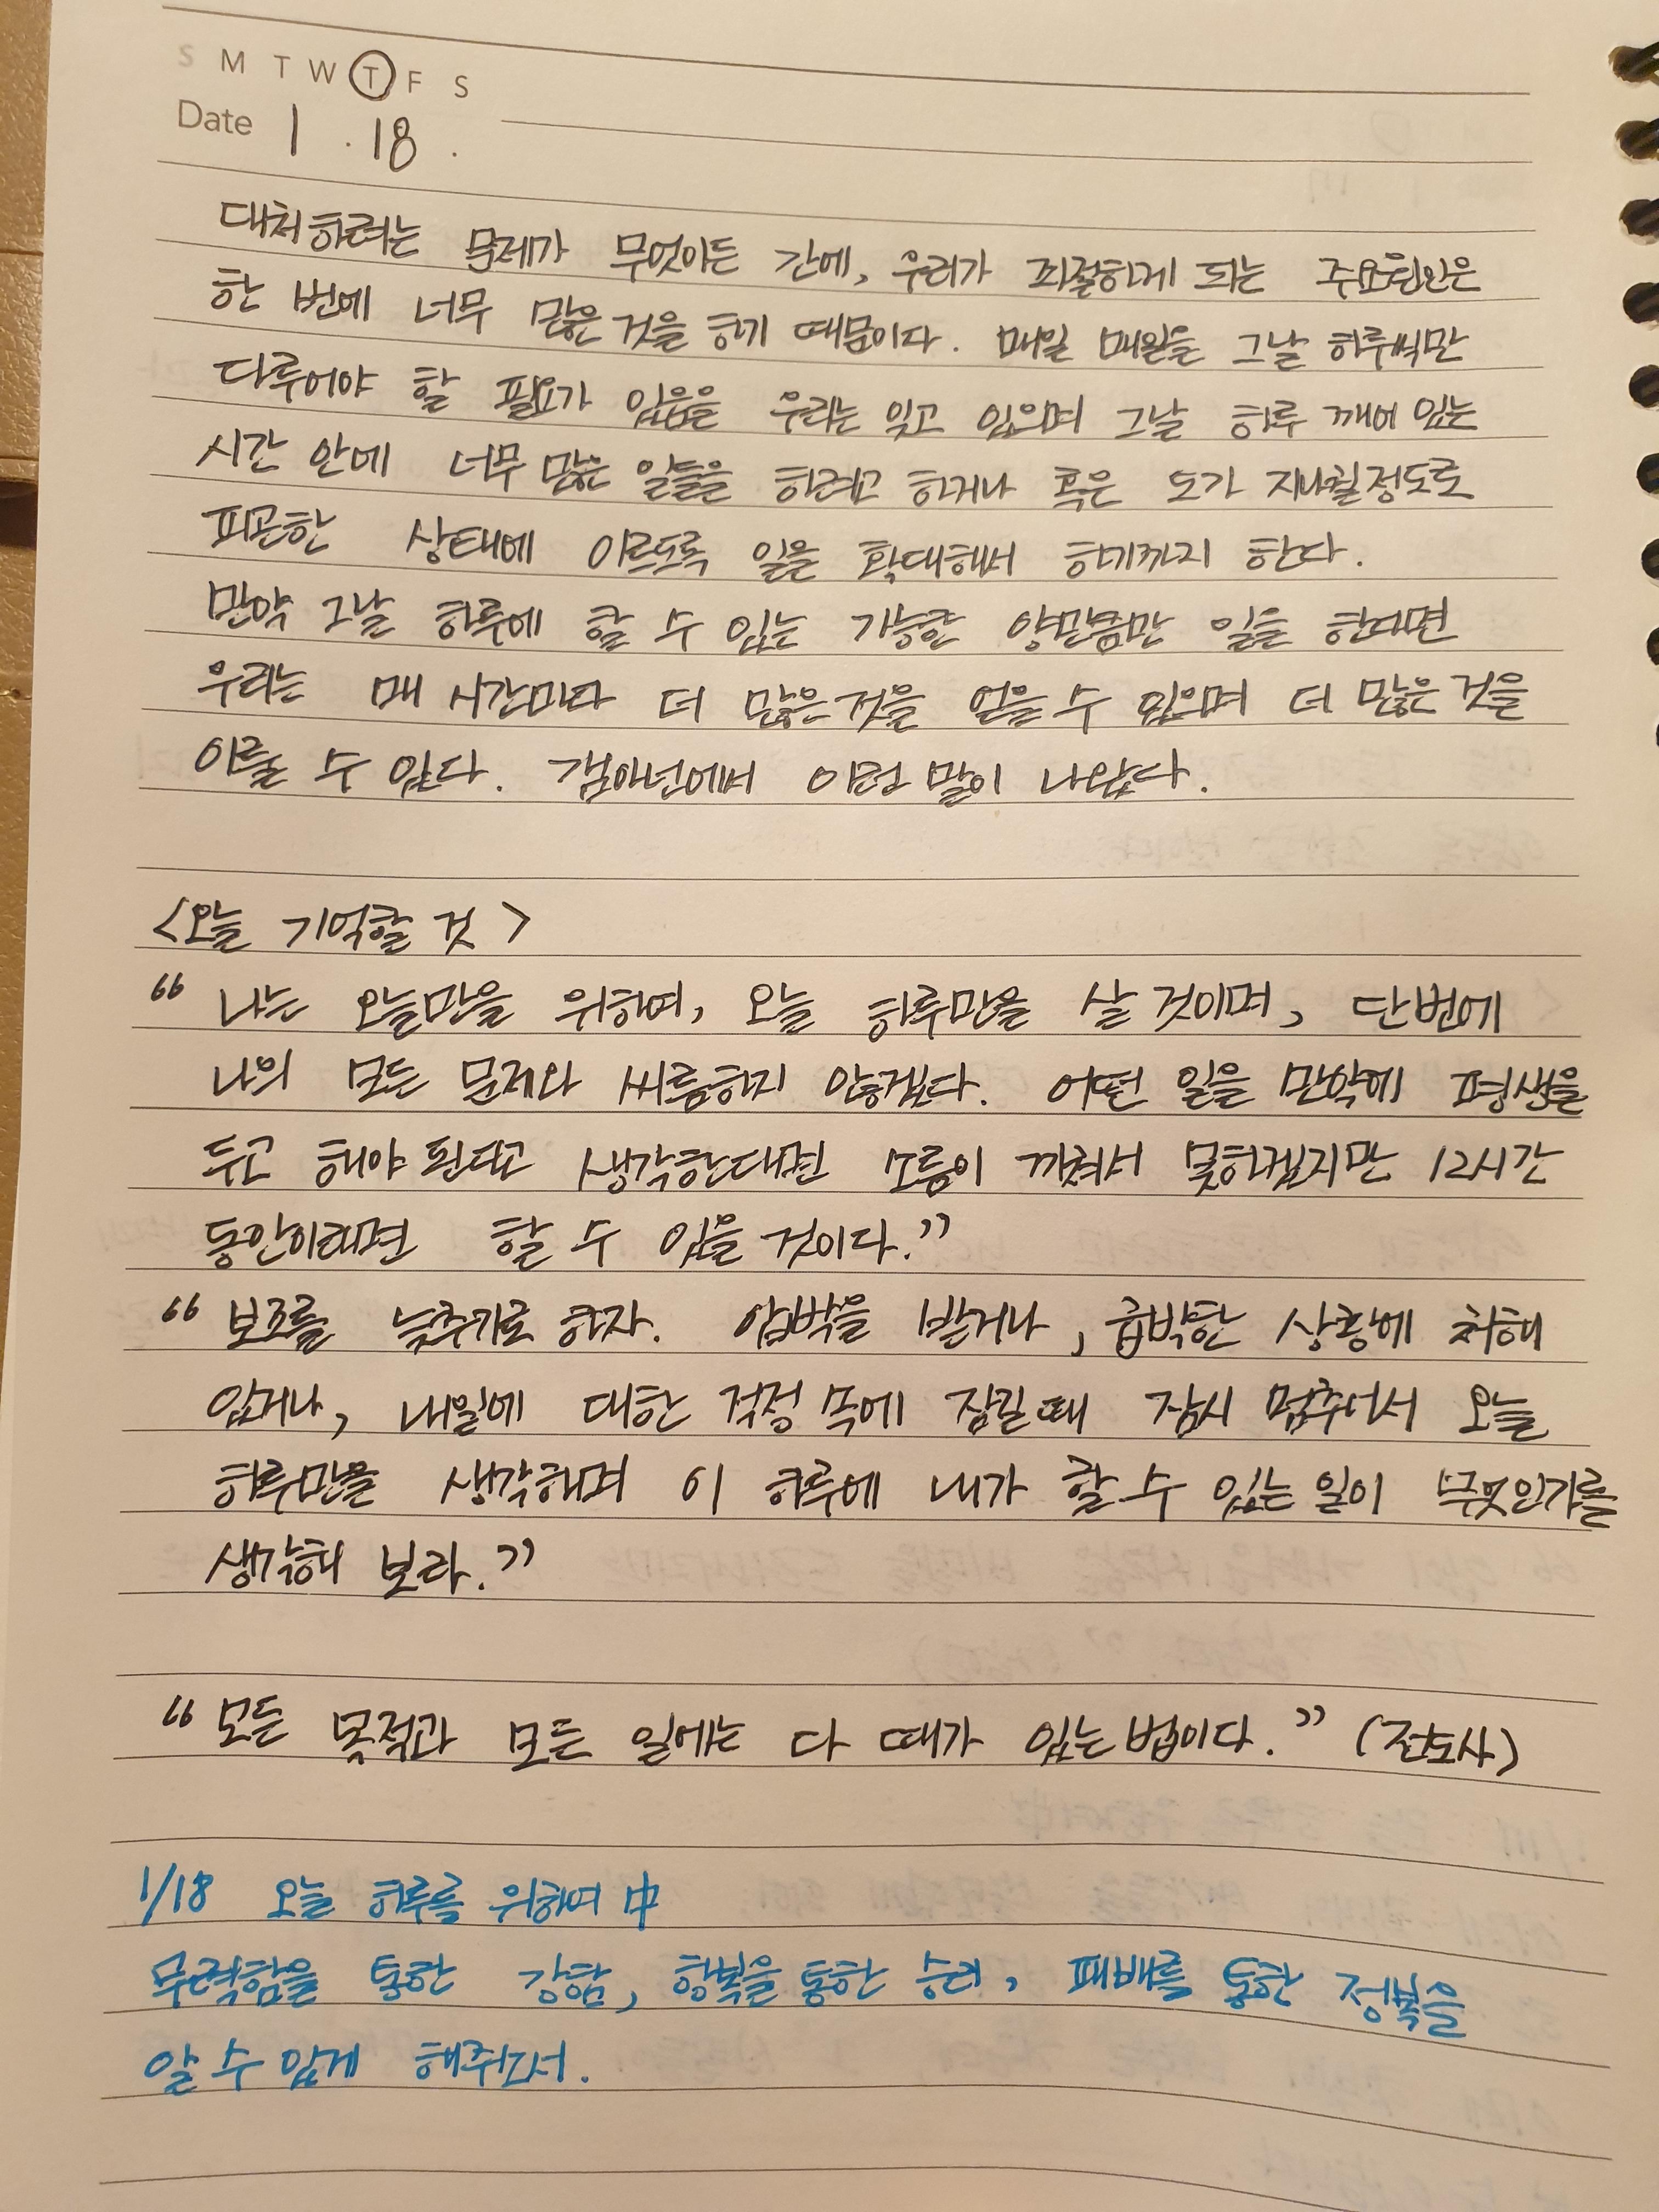 S M T W T F S
Date 1 . 18 .
대처하려는 문제가 무엇이든 간에, 우리가 좌절하게 되는 주요원인은
한 번에 너무 많은 것을 하기 때문이다. 매일 매일을 그날 하루씩만
다루어야 할 필요가 있음을 우리는 잊고 있으며 그날 하루 깨어 있는
시간 안에 너무 많은 일들을 하려고 하거나 혹은 도가 지나칠정도로
피곤한 상태에 이르도록 일을 확대해서 하기까지 한다.
만약 그날 하루에 할 수 있는 가능한 양만큼만 일을 한다면
우리는 매 시간마다 더 많은것을 얻을 수 있으며 더 많은 것을
이룰 수 있다. 갬아넌에서 이런 말이 나왔다.
<오늘 기억할 것>
“ 나는 오늘만을 위하여, 오늘 하루만을 살 것이며, 단번에
나의 모든 문제와 씨름하지 않겠다. 어떤 일을 만약에 평생을
두고 해야 된다고 생각한다면 소름이 끼쳐서 못하겠지만 12시간
동안이라면 할 수 있을 것이다.”
“ 보조를 늦추기로 하자. 압박을 받거나, 급박한 상황에 처해
있거나, 내일에 대한 걱정 속에 잠길 때 잠시 멈추어서 오늘
하루만을 생각하며 이 하루에 내가 할 수 있는 일이 무엇인가를
생각해 보라.”
“ 모든 목적과 모든 일에는 다 때가 있는 법이다.” (전도사)
1/18 오늘 하루를 위하여 中
무력함을 통한 강함, 항복을 통한 승리, 패배를 통한 정복을
알 수 있게 해주소서.